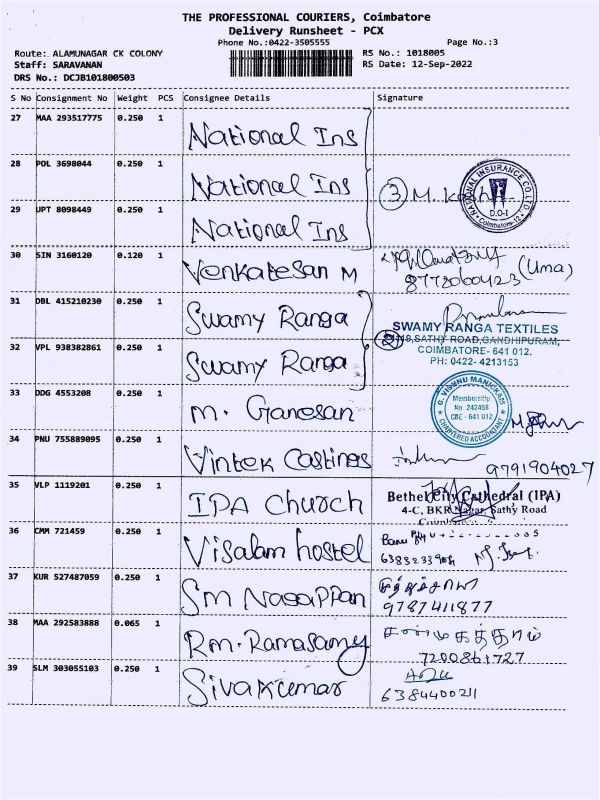 THE PROFESSIONAL COURIERS, Coimbatore
Delivery Runsheet - PCX
Phone No.:0422-3505555 Page No.:3
Route: ALAMUNAGAR CK COLONY RS No.: 1018005
Staff: SARAVANAN RS Date: 12-Sep-2022
DRS No.: DCJB101800503
S No Consignment No Weight PCS Consignee Details Signature
27 MAA 293517775 0.250 1 National Ins
28 POL 3698044 0.250 1 National Ins
NATIONAL INSURANCE CO.LTD
D.O-I
Coimbatore-12
3 M.
29 UPT 8098449 0.250 1 National Ins
30 SIN 3160120 0.120 1 Venkatesan M
(Uma)
31 DBL 415210230 0.250 1 Swamy Ranga
SWAMY RANGA TEXTILES
SATHY ROAD, GANDHIPURAM,
32 VPL 938382861 0.250 1 Swamy Ranga
2
COIMBATORE- 641 012.
PH: 0422- 4213153
33 DDG 4553208 0.250 1 M. Ganesan
G. VISHNU MANICKAM
Membership
No. 242456
CBE - 641 012
CHARTERED ACCOUNTANT
34 PNU 755889095 0.250 1 Vintek Castings
9791904027
35 VLP 1119201 0.250 1 IPA Church
Bethel City Cathedral (IPA)
4-C, BKR Nagar, Sathy Road
36 CMM 721459 0.250 1 Visalam hostel
37 KUR 527487059 0.250 1 Sm Nagappan
9787411877
38 MAA 292583888 0.065 1 Rm. Ramasamy
7200861727
39 SLM 303055103 0.250 1 Sivakumar
6384400211